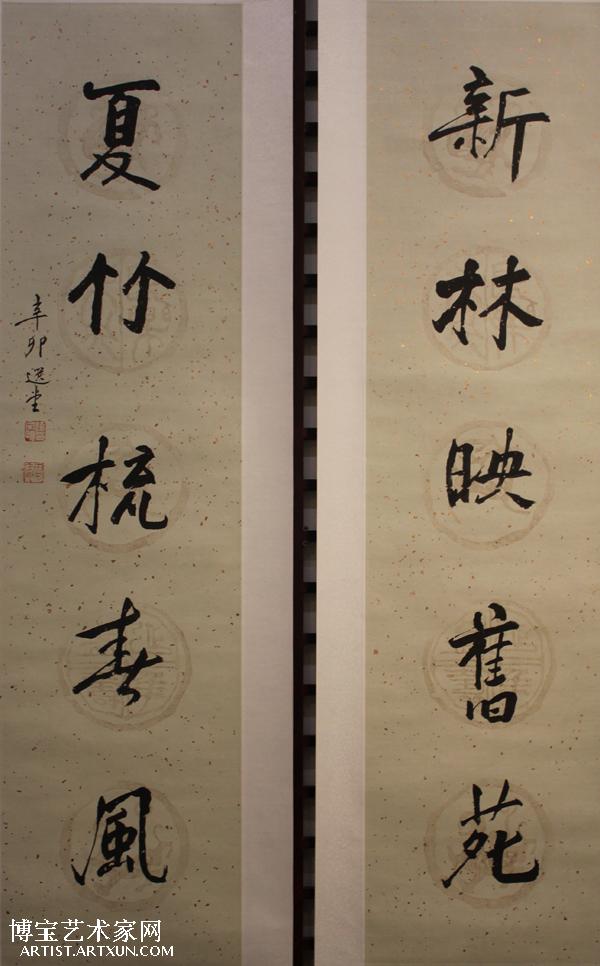 新林映舊苑
夏竹梳春風
辛卯 选堂
博宝艺术家网
ARTIST.ARTXUN.COM